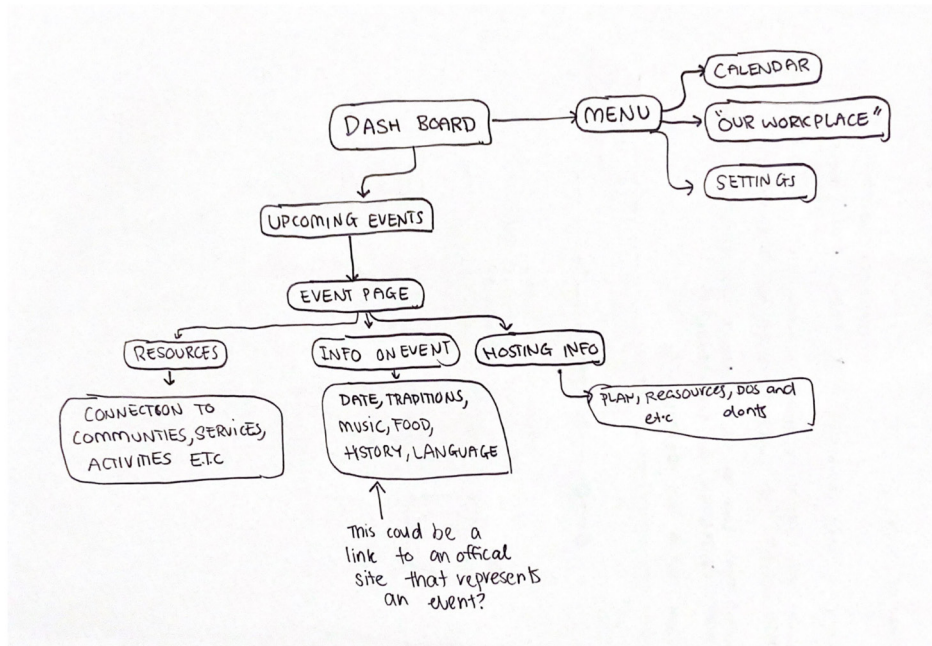 CALENDAR
DASH BOARD
MENU
"OUR WORKPLACE"
SETTINGS
UPCOMING EVENTS
EVENT PAGE
RESOURCES
INFO ON EVENT
HOSTING INFO
CONNECTION TO
COMMUNTIES, SERVICES,
ACTIVITIES E.T.C
DATE, TRADITIONS,
MUSIC, FOOD,
HSTORY, LANGUAGE
PLAN, REASOURCES, DOS and
etc donts
This could be a
link to an offical
site that represents
an event?